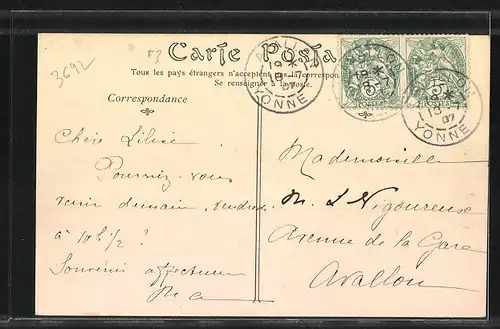 3692
Carte Postale
Tous les pays étrangers n'acceptent pas la correspon
Se renseigner à la poste.
Correspondance
YONNE
07
YONNE
5
5
POSTES
POSTES
Chère
Pourriez-vous
venir demain,
à 10h 1/2 ?
Souvenir affectueux
Mademoiselle
M. L Vigoureuse
Avenue de la Gare
Avallon